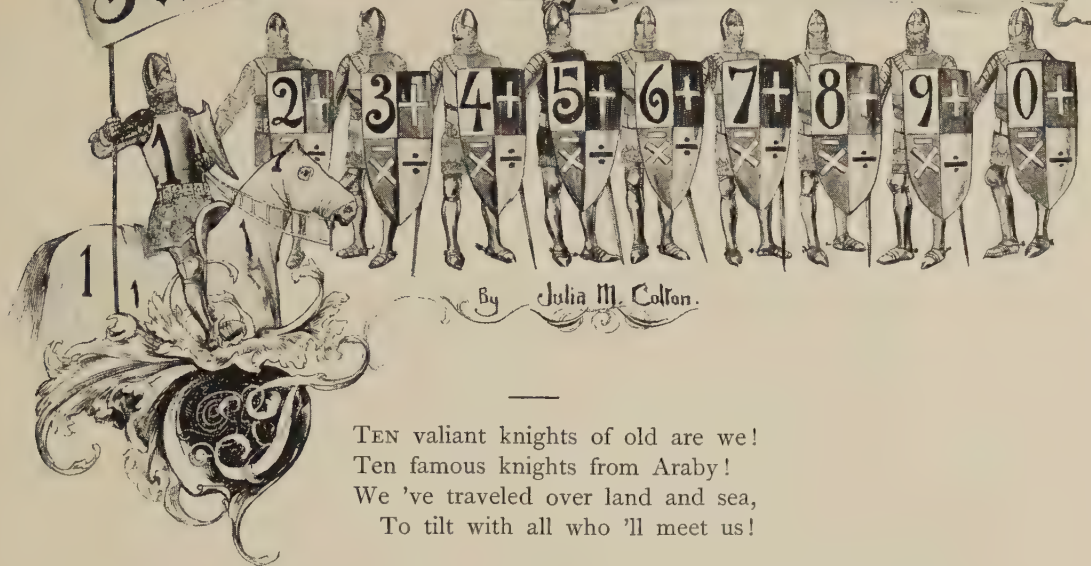 1
2+ 3+ 4+ 5+ 6+ 7+ 8+ 9+ 0+
×÷ ×÷ ×÷ ×÷ ×÷ ×÷ ×÷ ×÷
1
1 1
By Julia M. Colton.
TEN valiant knights of old are we!
Ten famous knights from Araby!
We 've traveled over land and sea,
To tilt with all who 'll meet us!